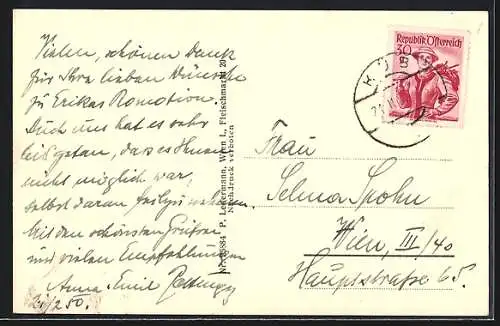 Vielen, schönen Dank
für Ihre lieben Wünsche
zu Erikas Promotion.
Auch uns hat es sehr
leid getan, dass es Ihnen
nicht möglich war,
selbst daran
Mit den schönsten Grüßen
und vielen Empfehlungen
Anna Emil
21/2 50.
Nr. 15884 P. Ledermann, Wien I., Fleischmarkt 20
Nachdruck verboten
Republik Österreich
30
Frau
Selma Spohn
Wien, III/40
Hauptstraße 65.